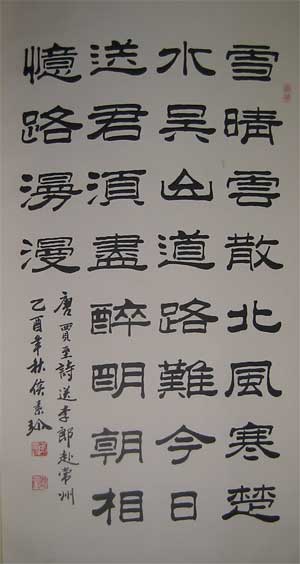 雪晴雲散北風寒楚
水吳山道路難今日
送君湏盡醉明朝相
憶路漫漫
唐賈至詩送李郎赴常州
乙酉年秋侯景